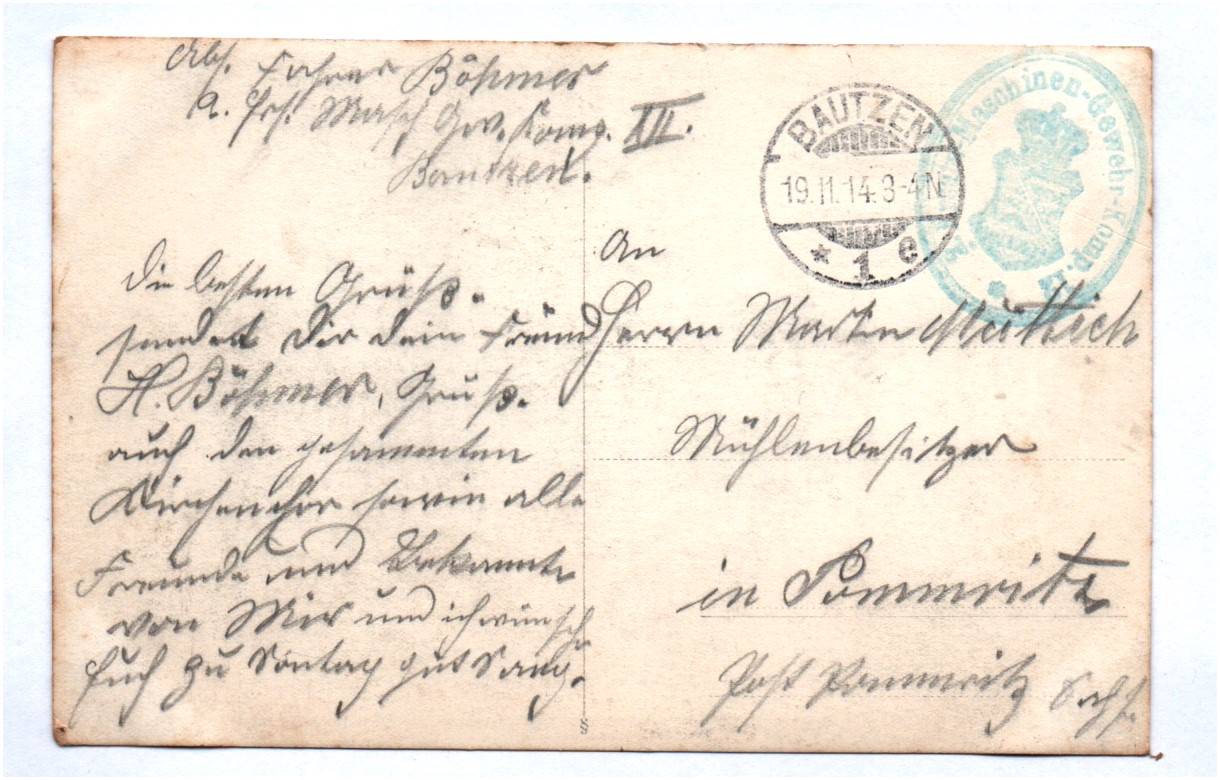 Abs. Fahrer Böhmer
2. Ers. Masch Gew. Komp. XII.
Bautzen.
BAUTZEN
19.11.14.3-4N
* 1 e
Maschinen-Gewehr-Komp.
die besten Grüße.
sendet Dir dein Freund
H. Böhmer, Gruß.
auch den gesammten
Kirchenchor sowie alle
Freunde und Bekannte
von Mir und ich wünsche
Euch zu Sontag gut Sang.
An
Herrn Martin
Mühlenbesitzer
in Pommritz
Post Pommritz Sachs.
S